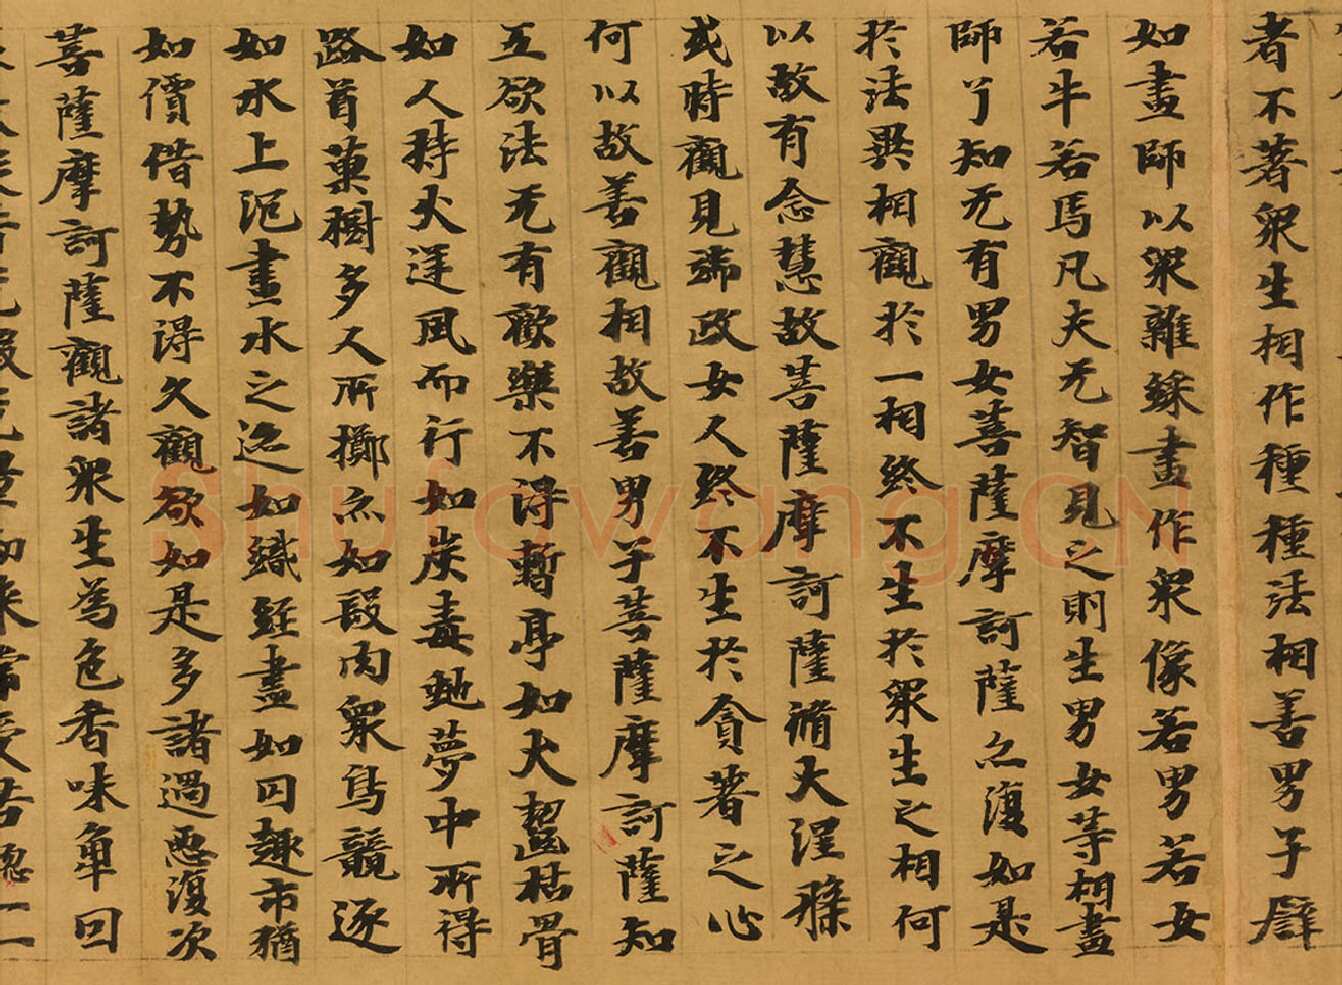 者不著衆生相作種種法相善男子譬
如畫師以衆雜綵畫作衆像若男若女
若牛若馬凡夫无智見之則生男女等相畫
師了知无有男女菩薩摩訶薩亦復如是
於法異相觀於一相終不生於衆生之相何
以故有念慧故菩薩摩訶薩脩大涅槃
或時觀見端政女人終不生於貪著之心
何以故善觀相故善男子菩薩摩訶薩知
五欲法无有歡樂不得暫亭如犬齧枯骨
如人持火逆風而行如炭毒虵夢中所得
路首菓樹多人所擲亦如段肉衆鳥競逐
如水上泡畫水之迹如織經盡如囚趣市猶
如價借勢不得久觀欲如是多諸過惡復次
菩薩摩訶薩觀諸衆生為色香味觸因
來常受苦惱一一
Shufawang.CN